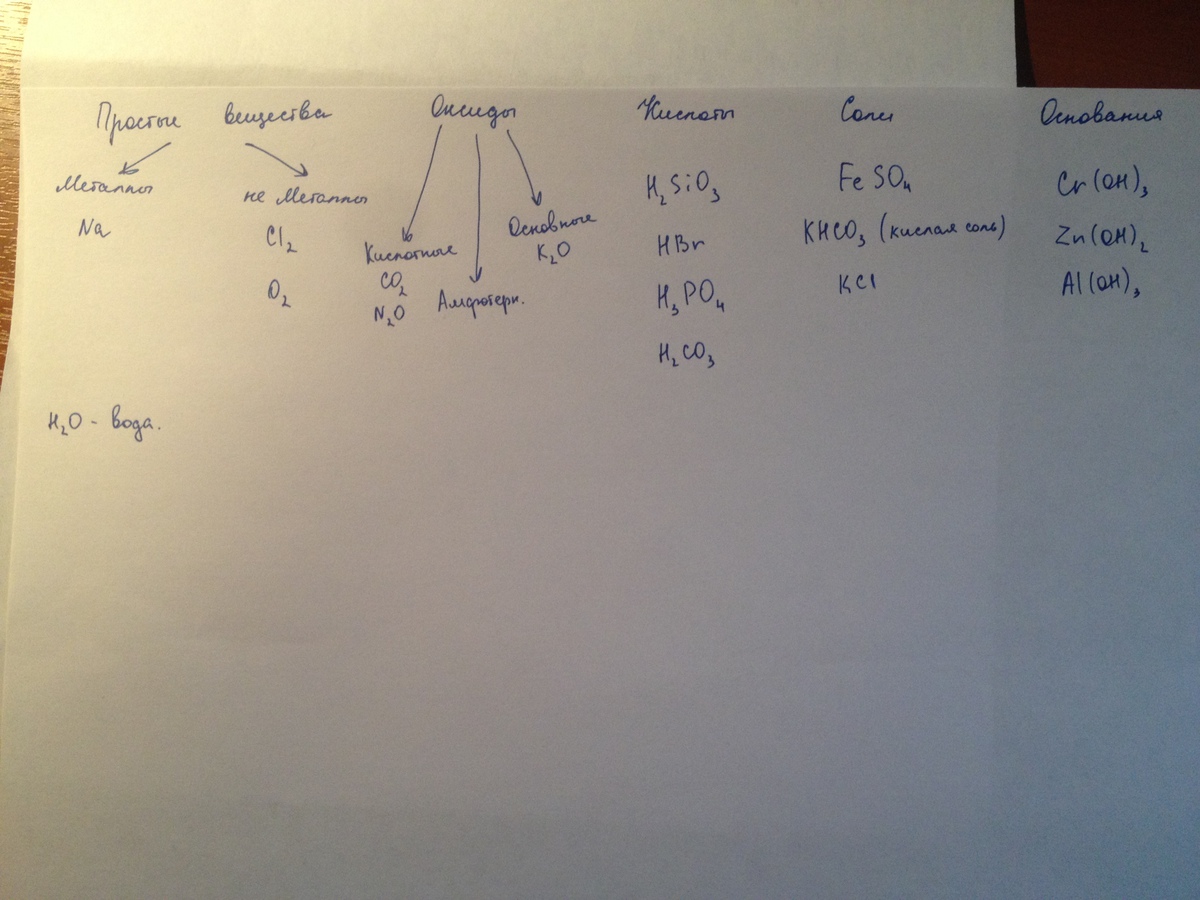 Простые вещества
Металлы
Na
не Металлы
Cl₂
O₂
Оксиды
Кислотные
CO₂
N₂O
Амфотерн.
Основные
K₂O
Кислоты
H₂SiO₃
HBr
H₃PO₄
H₂CO₃
Соли
FeSO₄
KHCO₃ (кислая соль)
KCl
Основания
Cr(OH)₃
Zn(OH)₂
Al(OH)₃
H₂O - вода.